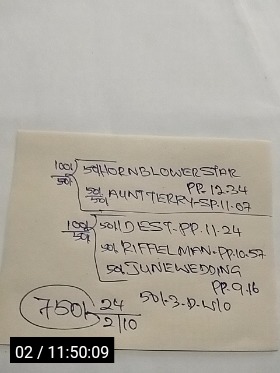 100/ 50/ HORNBLOWERSTAR
50/ PP. 12.34
50/ 50/ AUNT TERRY-SP. 11.07
100/ 50/ IDEST-PP. 11-24
50/ 50/ RIFFELMAN-PP. 10.57
50/ JUNEWEDDING
PP-9.16
750/ 24 50/-3-D-W/O
2/10
02 / 11:50:09